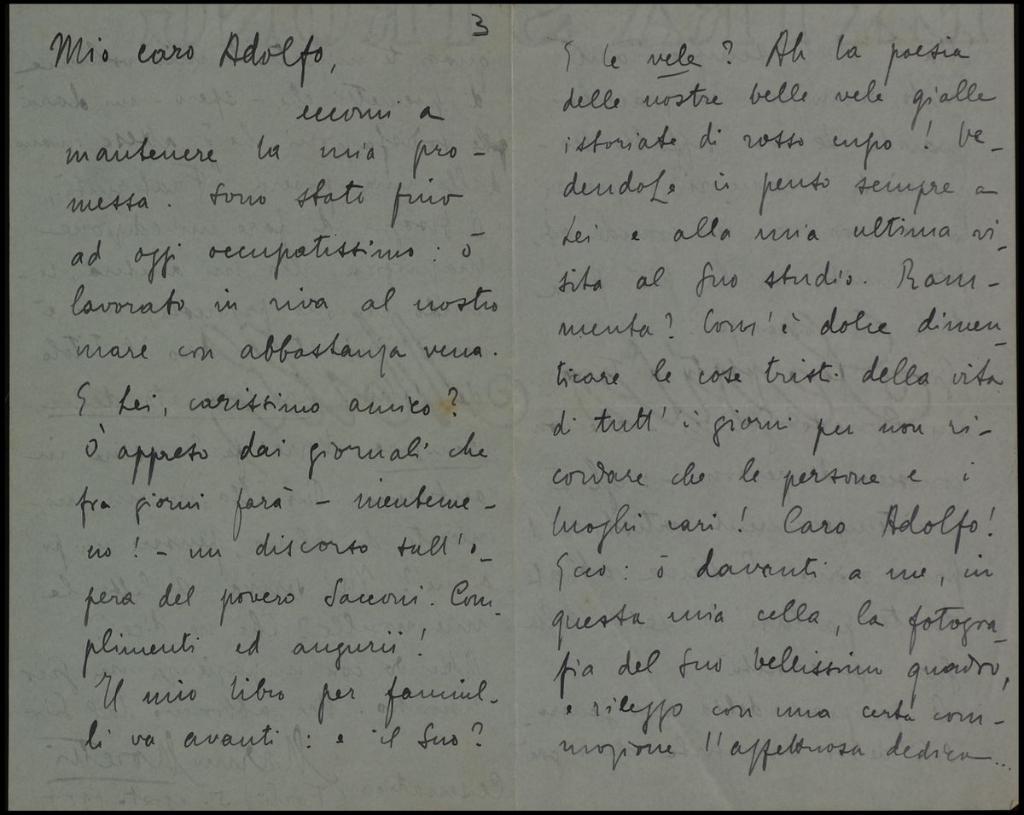 3
Mio caro Adolfo,
eccomi a
mantenere la mia pro-
messa. Sono stato fino
ad oggi occupatissimo: ò
lavorato in riva al nostro
mare con abbastanza vena.
E Lei, carissimo amico?
Ò appreso dai giornali che
fra giorni farà - nienteme-
no! - un discorso sull'o-
pera del povero Sacconi. Com-
plimenti ed augurii!
Il mio libro per fanciul-
li va avanti: e il Suo?
E le vele? Ah la poesia
delle nostre belle vele gialle
istoriate di rosso cupo! Ve-
dendole io penso sempre a
Lei e alla mia ultima vi-
sita al Suo studio. Ram-
menta? Com'è dolce dimen-
ticare le cose tristi della vita
di tutt'i giorni per non ri-
cordare che le persone e i
luoghi cari! Caro Adolfo!
Ecco: ò davanti a me, in
questa mia cella, la fotogra-
fia del Suo bellissimo quadro,
e rileggo con una certa com-
mozione l'affettuosa dedica...